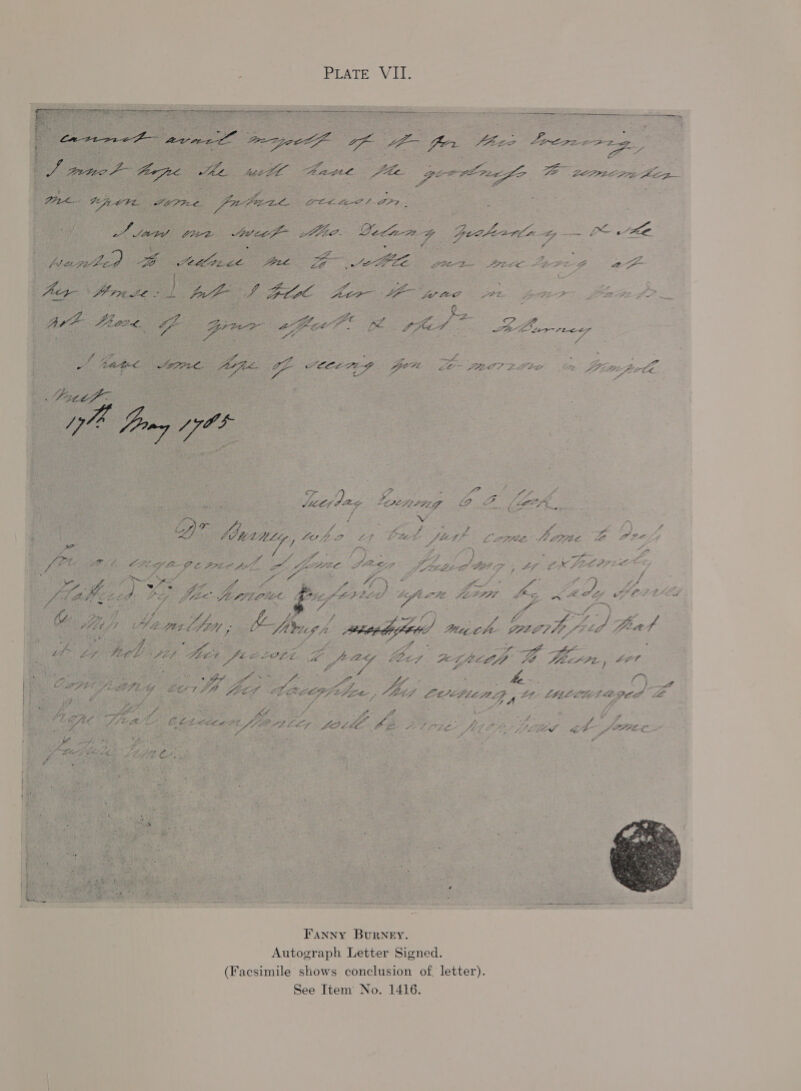 PLATE VII.
cannot avail myself of it for this Evening,
I must hope she will have the goodness to remember
me upon some future occasion.
I saw our sweet Mrs. Delany yesterday — & she
wanted to seduce me to settle our meeting at
her House: but I told her it was in your Hands —
not those of your affect. & obed.t F Burney
I have some hope of seeing you to-morrow in Wimpole
Street
17th May 1785
Tuesday Evening 6 O Clock
Dr Burney, who is but just come home to dress
for an engagement of some days standing, is extremely
flattered by the honour preferred upon him by Lady Herries
& Miss Hamilton; & though much mortified that
it is not in his power to pay his respects to them, in
company with his daughter, this evening, he is encouraged to
hope that circumstances will be more propitious at some
future time.
FANNY BURNEY.
Autograph Letter Signed.
(Facsimile shows conclusion of letter).
See Item No. 1416.